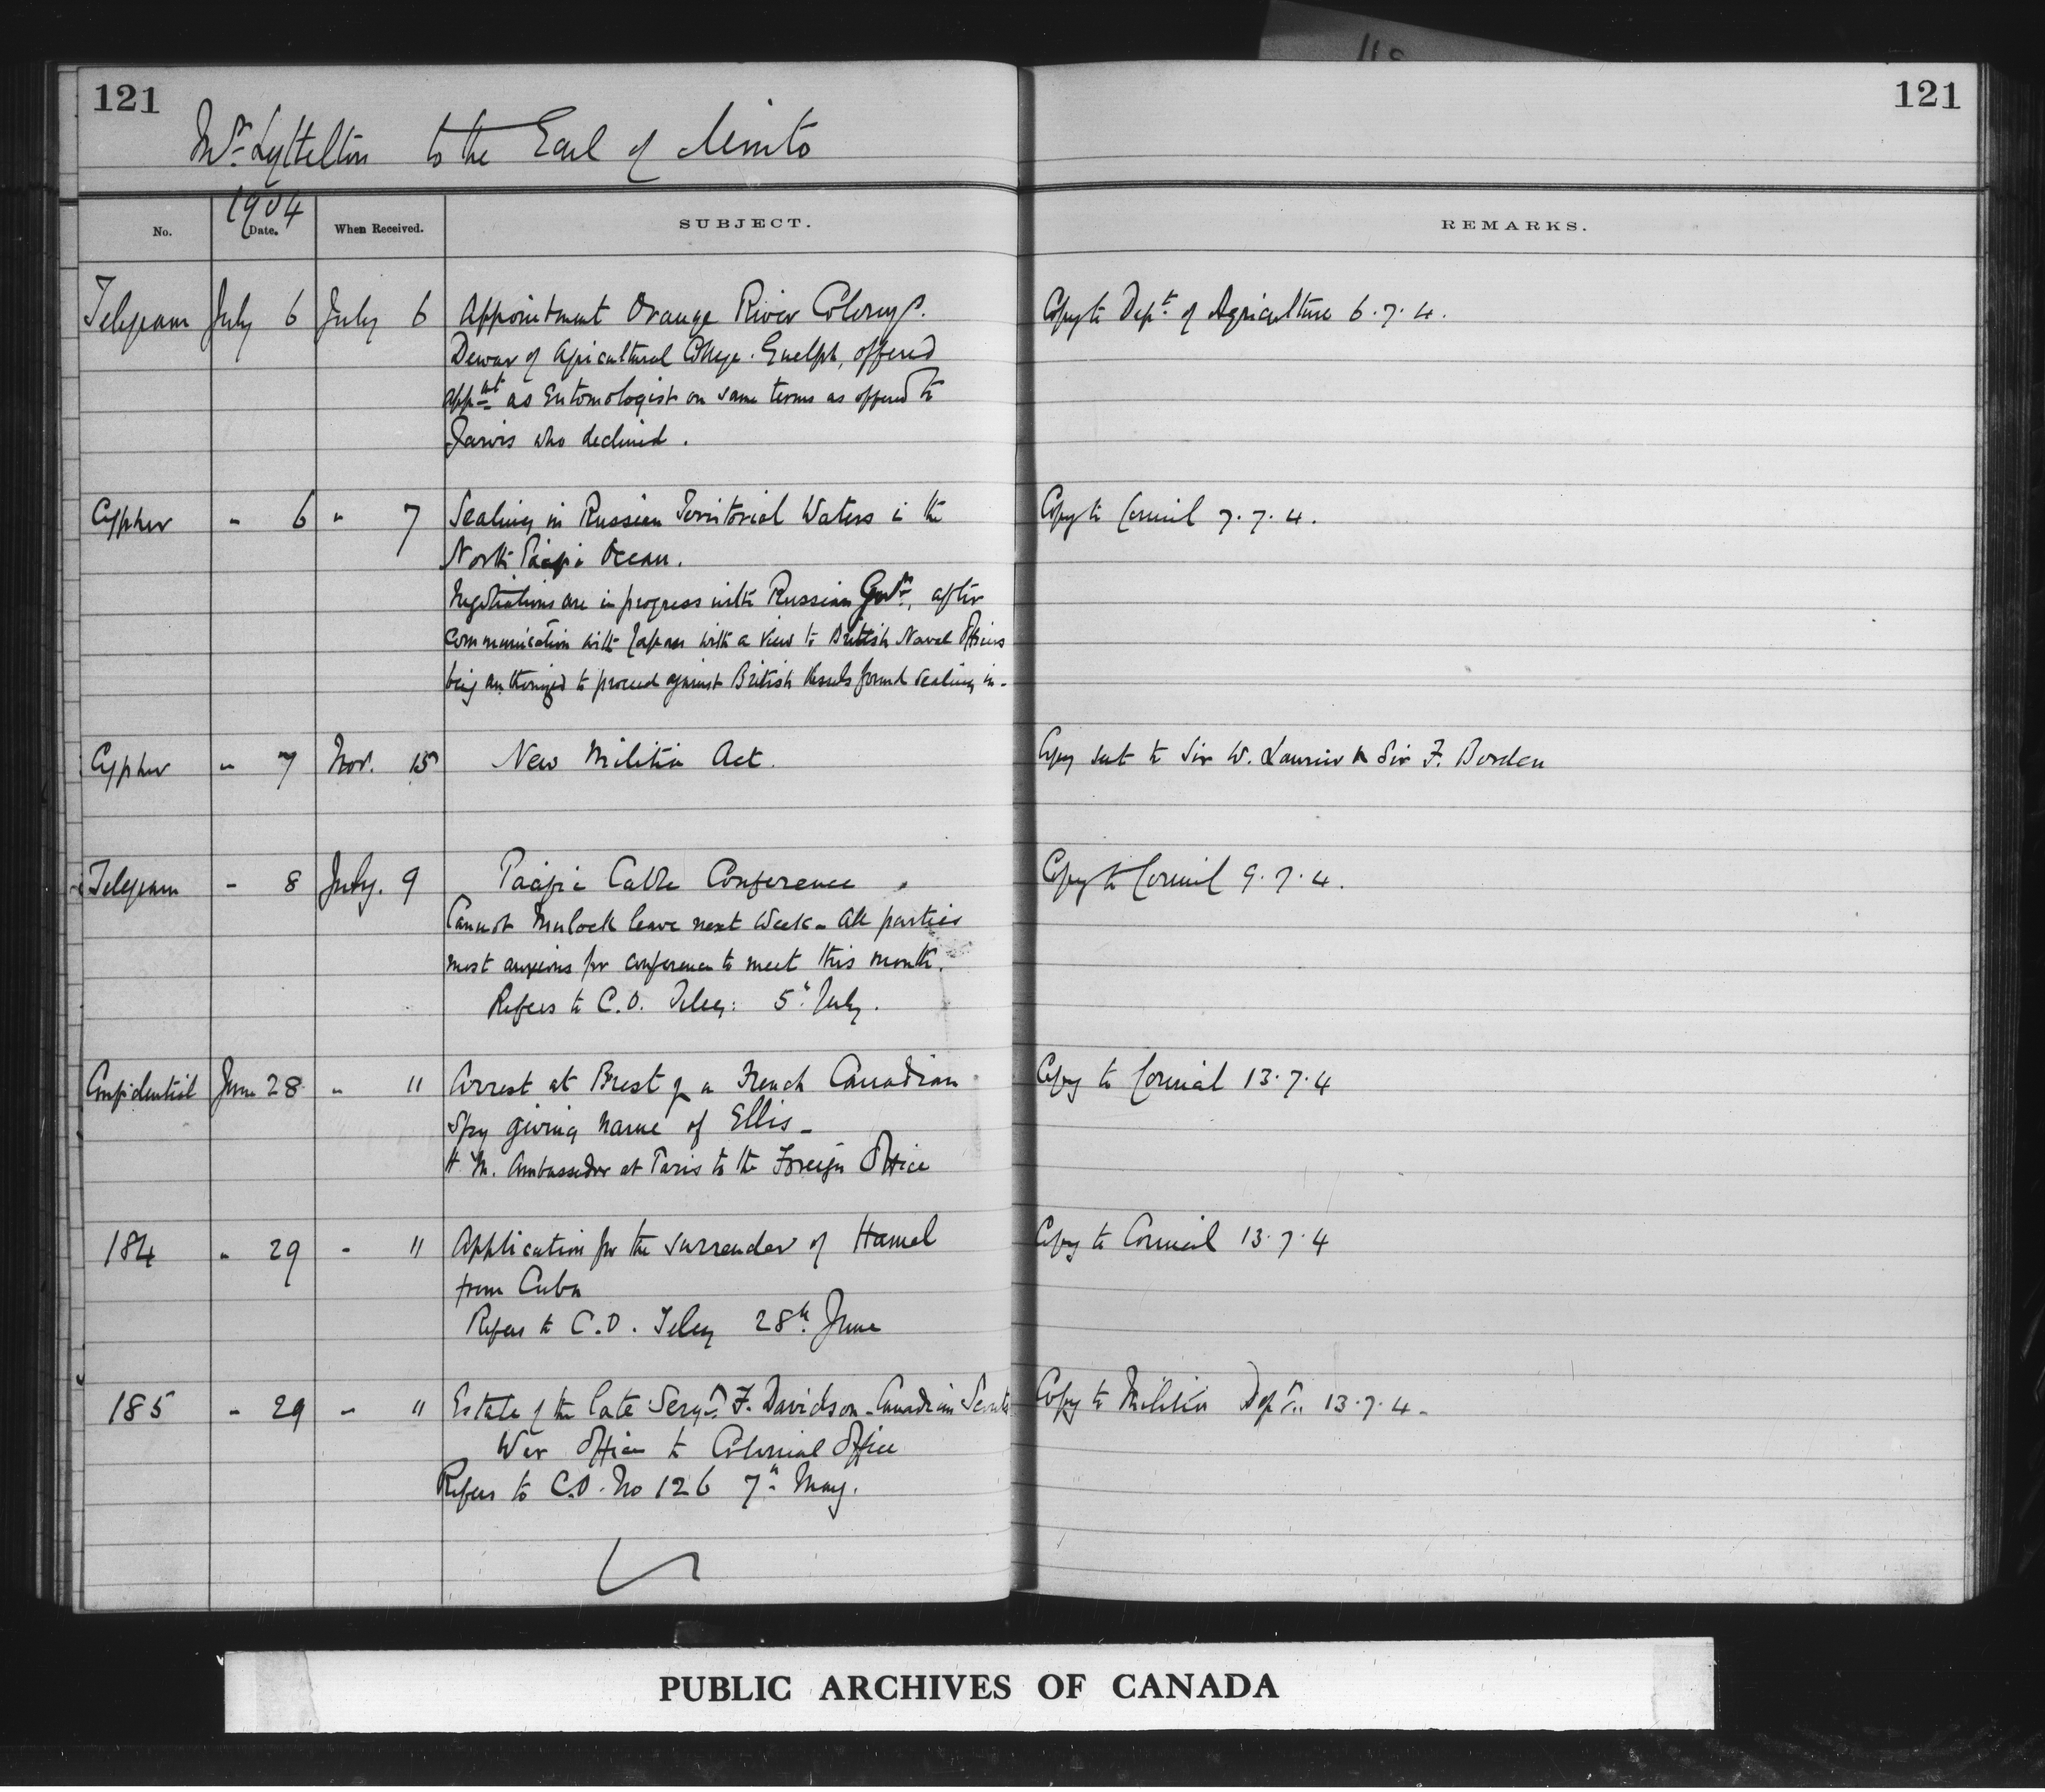 121
121
Mr. Lyttelton to the Earl of Minto
1904
No. Date. When Received. SUBJECT. REMARKS.
Telegram July 6 July 6 Appointment Orange River Colony. Copy to Dept. of Agriculture 6.7.4.
Dewar of Agricultural College. Guelph, offered
appnt as Entomologist on same terms as offered to
Jarvis who declined.
Cypher " 6 " 7 Sealing in Russian Territorial Waters in the Copy to Council 7.7.4.
North Pacific Ocean.
Negotiations are in progress with Russian Govt., after
communication with Japan with a view to British Naval Officers
being authorized to proceed against British vessels found sealing in -
Cypher " 7 Nov. 15 New Militia Act. Copy sent to Sir W. Laurier & Sir F. Borden
Telegram " 8 July. 9 Pacific Cable Conference. Copy to Council 9.7.4.
Cannot Mulock leave next week - All parties
most anxious for conference to meet this month.
Refers to C.O. Teleg: 5th July.
Confidential June 28 " 11 Arrest at Brest of a French Canadian Copy to Council 13.7.4
Spy giving name of Ellis -
H.M. Ambassador at Paris to the Foreign Office
184 " 29 " 11 Application for the surrender of Hamel Copy to Council 13.7.4
from Cuba
Refers to C.O. Teleg 28th June
185 " 29 " 11 Estate of the late Sergt. F. Davidson - Canadian Scouts Copy to Militia Dept. 13.7.4.
War Office to Colonial Office
Refers to C.O. No 126 7th May.
PUBLIC ARCHIVES OF CANADA